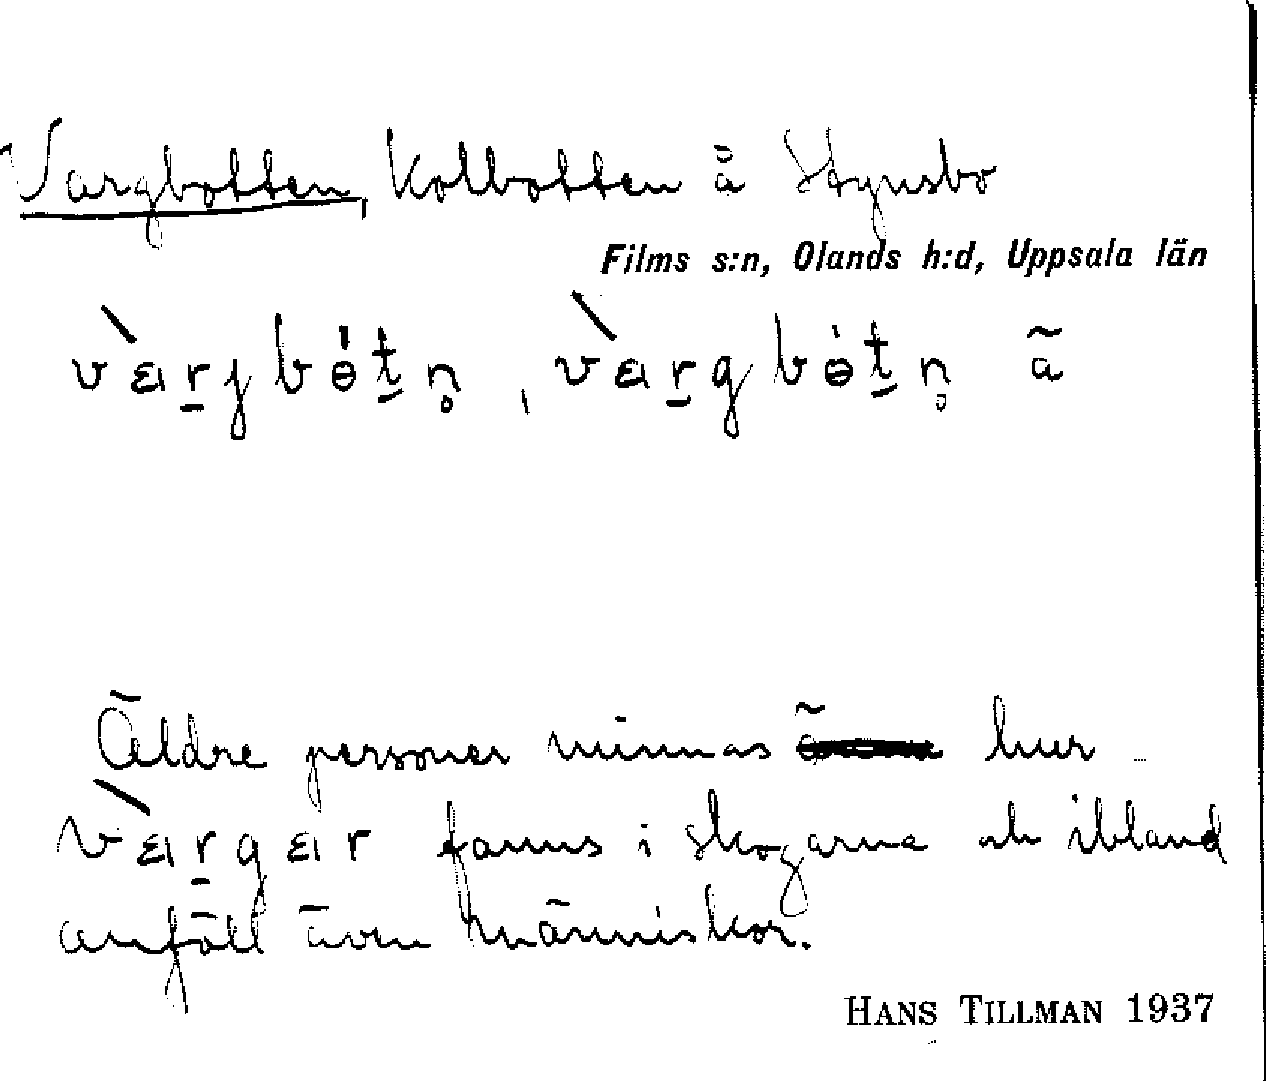 Vargbotten, Kolbotten å Stynsbo
Films s:n, Olands h:d, Uppsala län
å
Äldre personer minnas hur
vargar fanns i skogarna och ibland
anföll även människor.
HANS TILLMAN 1937